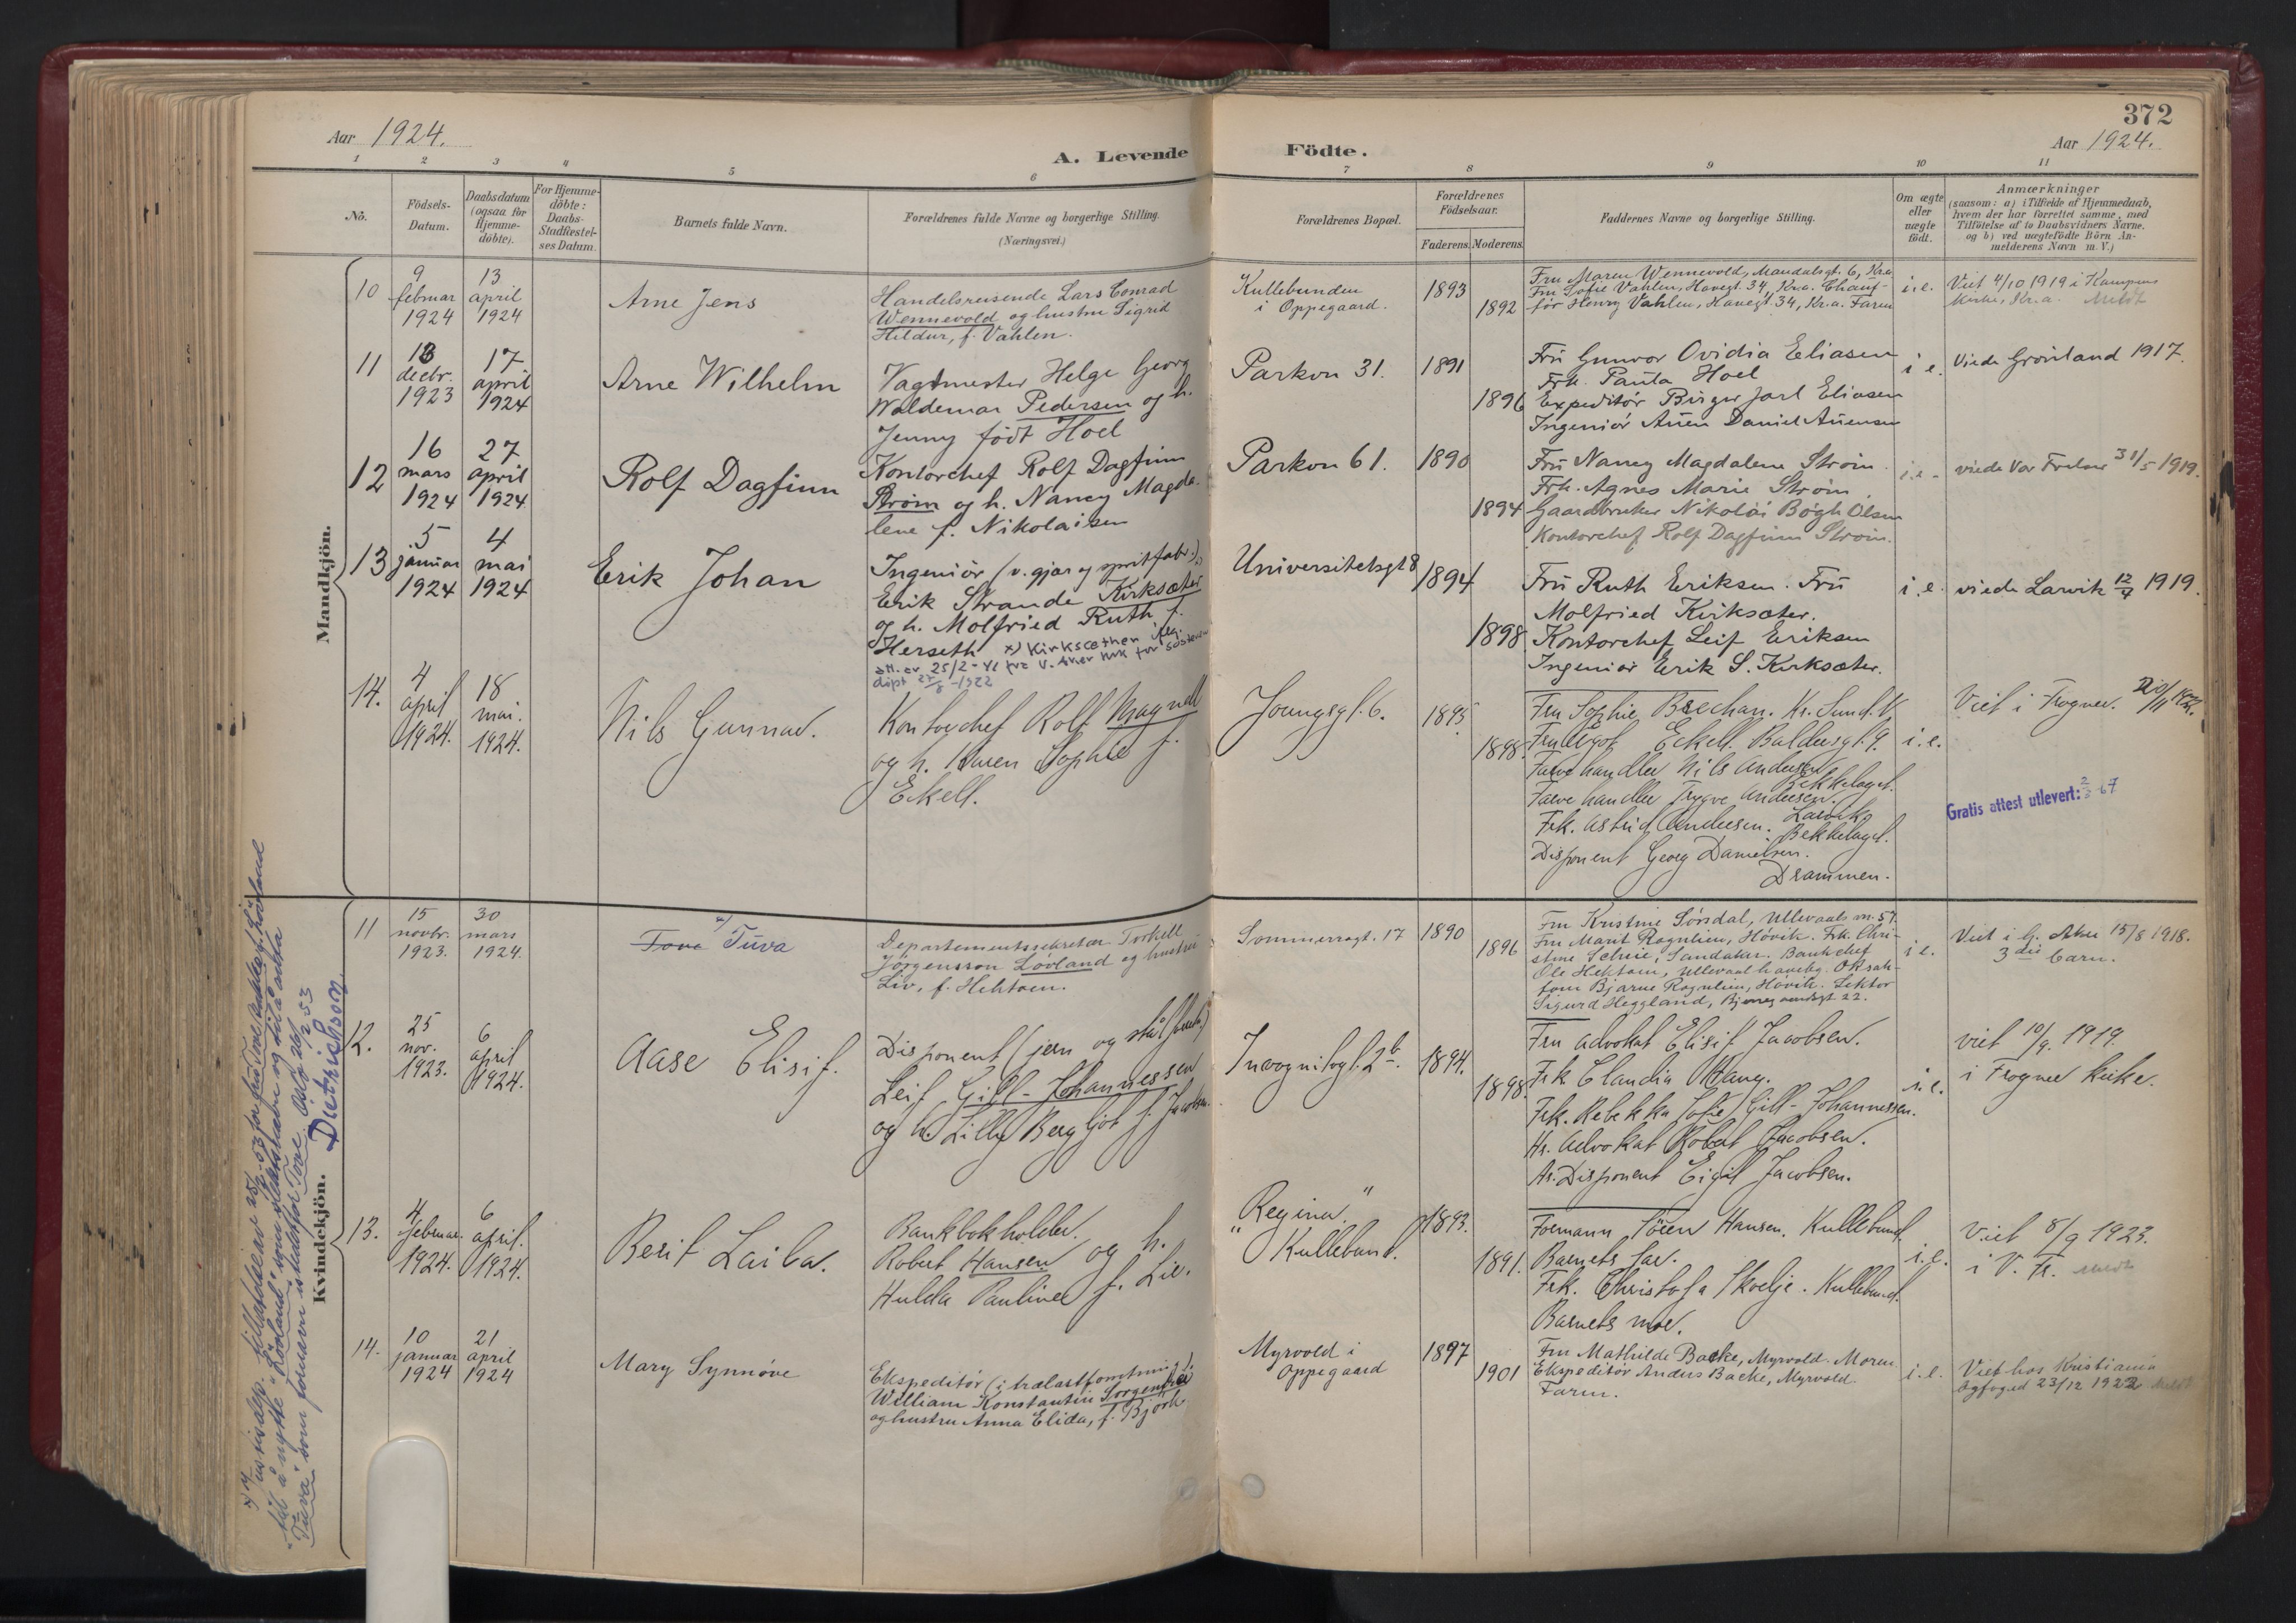 372
Aar 1924.
A. Levende Födte.
Aar 1924.
1 2 3 4 5 6 7 8 9 10 11
No.
Födsels-Datum.
Daabsdatum (ogsaa for Hjemme-döbte).
For Hjemme-döbte: Daabs-Stadfæstel-ses Datum.
Barnets fulde Navn.
Forældrenes fulde Navne og borgerlige Stilling. (Næringsvei.)
Forældrenes Bopæl.
Forældrenes Födselsaar.
Faderens. Moderens.
Faddernes Navne og borgerlige Stilling.
Om ægte eller uægte födt.
Anmærkninger
(saasom: a) i Tilfælde af Hjemmedaab,
hvem der har forrettet samme, med
Tilföielse af to Daabsvidners Navne.
og b) ved uægtefödte Börn An-
melderens Navn m. V.)
Mandkjön.
10
9 februar 1924
13 april 1924
Arne Jens
Handelsreisende Lars Conrad
Wennevold og hustru Sigrid
Hildur, f. Vahlen.
Kullebunden
i Oppegaard.
1893
1892
Fru Maren Wennevold, Mandalsgt. 6, Kr.a.
Fru Sofie Vahlen, Havegt. 34, Kr.a. Chauf-
för Henry Vahlen, Havegt. 34, Kr.a. Faren
i.e.
Viet 4/10 1919 i Kampens
kirke, Kr.a. Meldt
11
18 decbr. 1923
17 april 1924
Arne Wilhelm
Vagtmester Helge Georg
Waldemar Pedersen og h.
Jenny født Hoel
Parkvn 31.
1891
1896
Fru Gunvor Ovidia Eliasen
Frk. Paula Hoel
Expeditør Birger Jarl Eliasen
Ingeniør Auen Daniel Auensen
i e.
Viede Grønland 1917.
12
16 mars 1924
27 april 1924
Rolf Dagfinn
Kontorchef Rolf Dagfinn
Strøm og h. Nancy Magda-
lene f. Nikolaisen
Parkvn 61.
1890
1894
Fru Nancy Magdalene Strøm.
Frk. Agnes Marie Strøm
Gaardbruker Nikolai Bøgh Olsen
Kontorchef Rolf Dagfinn Strøm.
i.e.
viede Vor Frelser 31/5 1919.
13
5 januar 1924
4 mai 1924
Erik Johan
Ingeniør (v. gjær og spritfabr.)
Erik Strande Kirksæter
og h. Molfried Ruth, f.
Herseth x) Kirksæther iflg.
att. av 25/2-41 fra V. Aker kirk for søsteren
døpt 27/8-1922
Universitetsgt 8
1894
1898
Fru Ruth Eriksen. Fru
Molfried Kirksæter.
Kontorchef Leif Eriksen
Ingeniør Erik S. Kirksæter.
i.e.
viede Larvik 12/4 1919.
14.
4 april 1924.
18 mai. 1924.
Nils Gunnar.
Kontorchef Rolf Magnell
og h. Karen Sophie f.
Eckell.
Youngsgt. 6.
1895
1898.
Fru Sophie Brechan. Kr. Sund. N.
Eckell. Baldersgt. 9.
Farvehandler Nils Andersen
Bekkelaget.
Farvehandler Trygve Andersen.
Larvik
Frk. Astrid Andersen. Bekkelaget.
Disponent Georg Danielsen.
Drammen.
i.e.
Viet i Frogner.
Gratis attest utlevert: 2/3-67
Kvindekjön.
11
15 novbr. 1923.
30 mars 1924.
Tove x) Tuva
Departementssekretær Torkell
Jörgensson Lövland og hustru
Liv, f. Hektoen.
Sommerrogt. 17
1890
1896
Fru Kristine Sönsdal, Ullevaals m. 51.
Fru Marit Rognlien, Hövik. Frk. Chri-
stine Scheie, Sandaker. Bankchef
Ole Hektoen, Ullevaal haveby. O.r.sak-
förer Bjarne Rognlien, Hövik. Lektor
Sigurd Heggland, Bjerregaardsgt 22.
i e.
Viet i h. Aker 15/8 1918.
3die barn.
12.
25 nov. 1923.
6 april 1924.
Aase Elisif.
Disponent (jern og stål)
Leif Gill-Johannessen
og h. Lilly Bergljot f. Jacobsen.
Incognitogt. 2b.
1894.
1898.
Fru advokat Elisif Jacobsen.
Frk Claudia Hang.
Frk. Rebekka Sofie Gill-Johannessen.
Hr. Advokat Robert Jacobsen.
Hr. Disponent Eigil Jacobsen.
i.e.
viet 10/9. 1919.
i Frogner kirke.
13.
4 februar 1924.
6 april. 1924.
Berit Laila.
Bankbokholder.
Robert Hansen og h.
Hulda Pauline f. Lie.
"Regina"
Kullebund.
1893.
1891.
Formann Søren Hansen. Kullebund.
Barnets far.
Frk. Christofa Skoelje. Kullebund.
Barnets mor.
i.e.
Viet 8/9 1923.
i V. Fr. Meldt
14.
10 januar 1924
21 april 1924
Mary Synnöve
Ekspeditör (i trælastforretning),
William Konstantin Sorgenfrei
og hustru Anna Elida, f. Björk
Myrvold i
Oppegaard
1897
1901
Fru Mathilde Backe, Myrvold. Moren
Ekspeditör Anders Backe, Myrvold.
Faren.
i.e.
Viet hos Kristiania
byfoged 23/12 1922 Meldt
x) If. justisdep. tillatelse av 25/2-53 for fru Tove Aaslaug Lövland
til å nytte "Lövland" som slektsnavn og til å anta
"Tuva" som fornavn istedetfor Tove. Oslo 26/2 53
Dietrichson